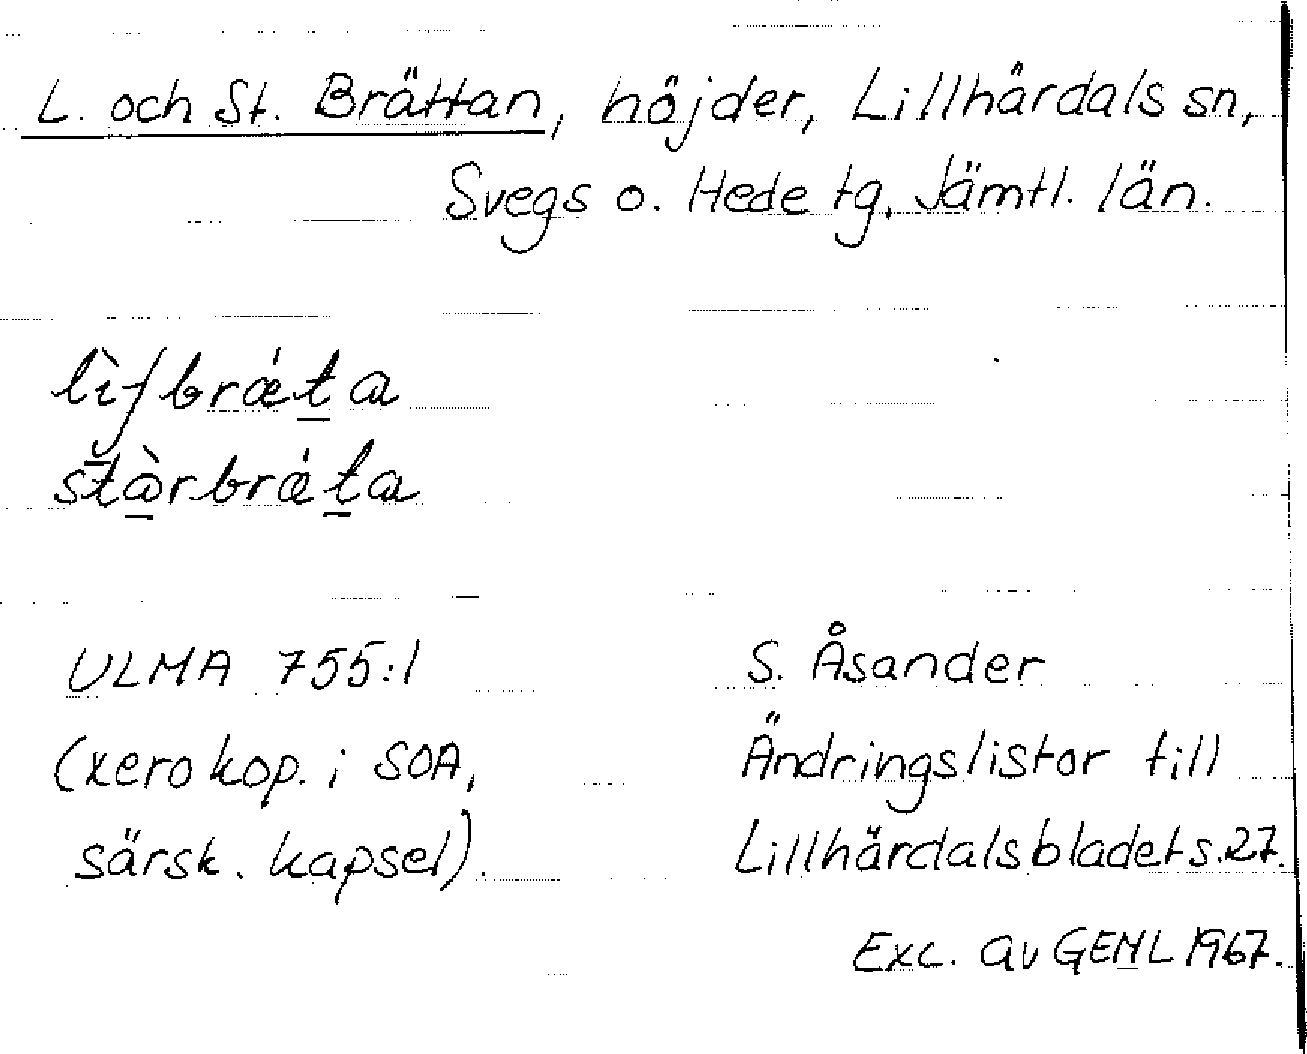 L. och St. Brättan, höjder, Lillhärdals sn,
Svegs o. Hede tg, Jämtl. län.
lìʃbrǽt̠a
stòrbrǽt̠a
ULMA 755:1
(xerokop. i SOA,
särsk. kapsel).
S. Åsander
Ändringslistor till
Lillhärdalsbladet s. 27.
Exc. av GEHL 1967.